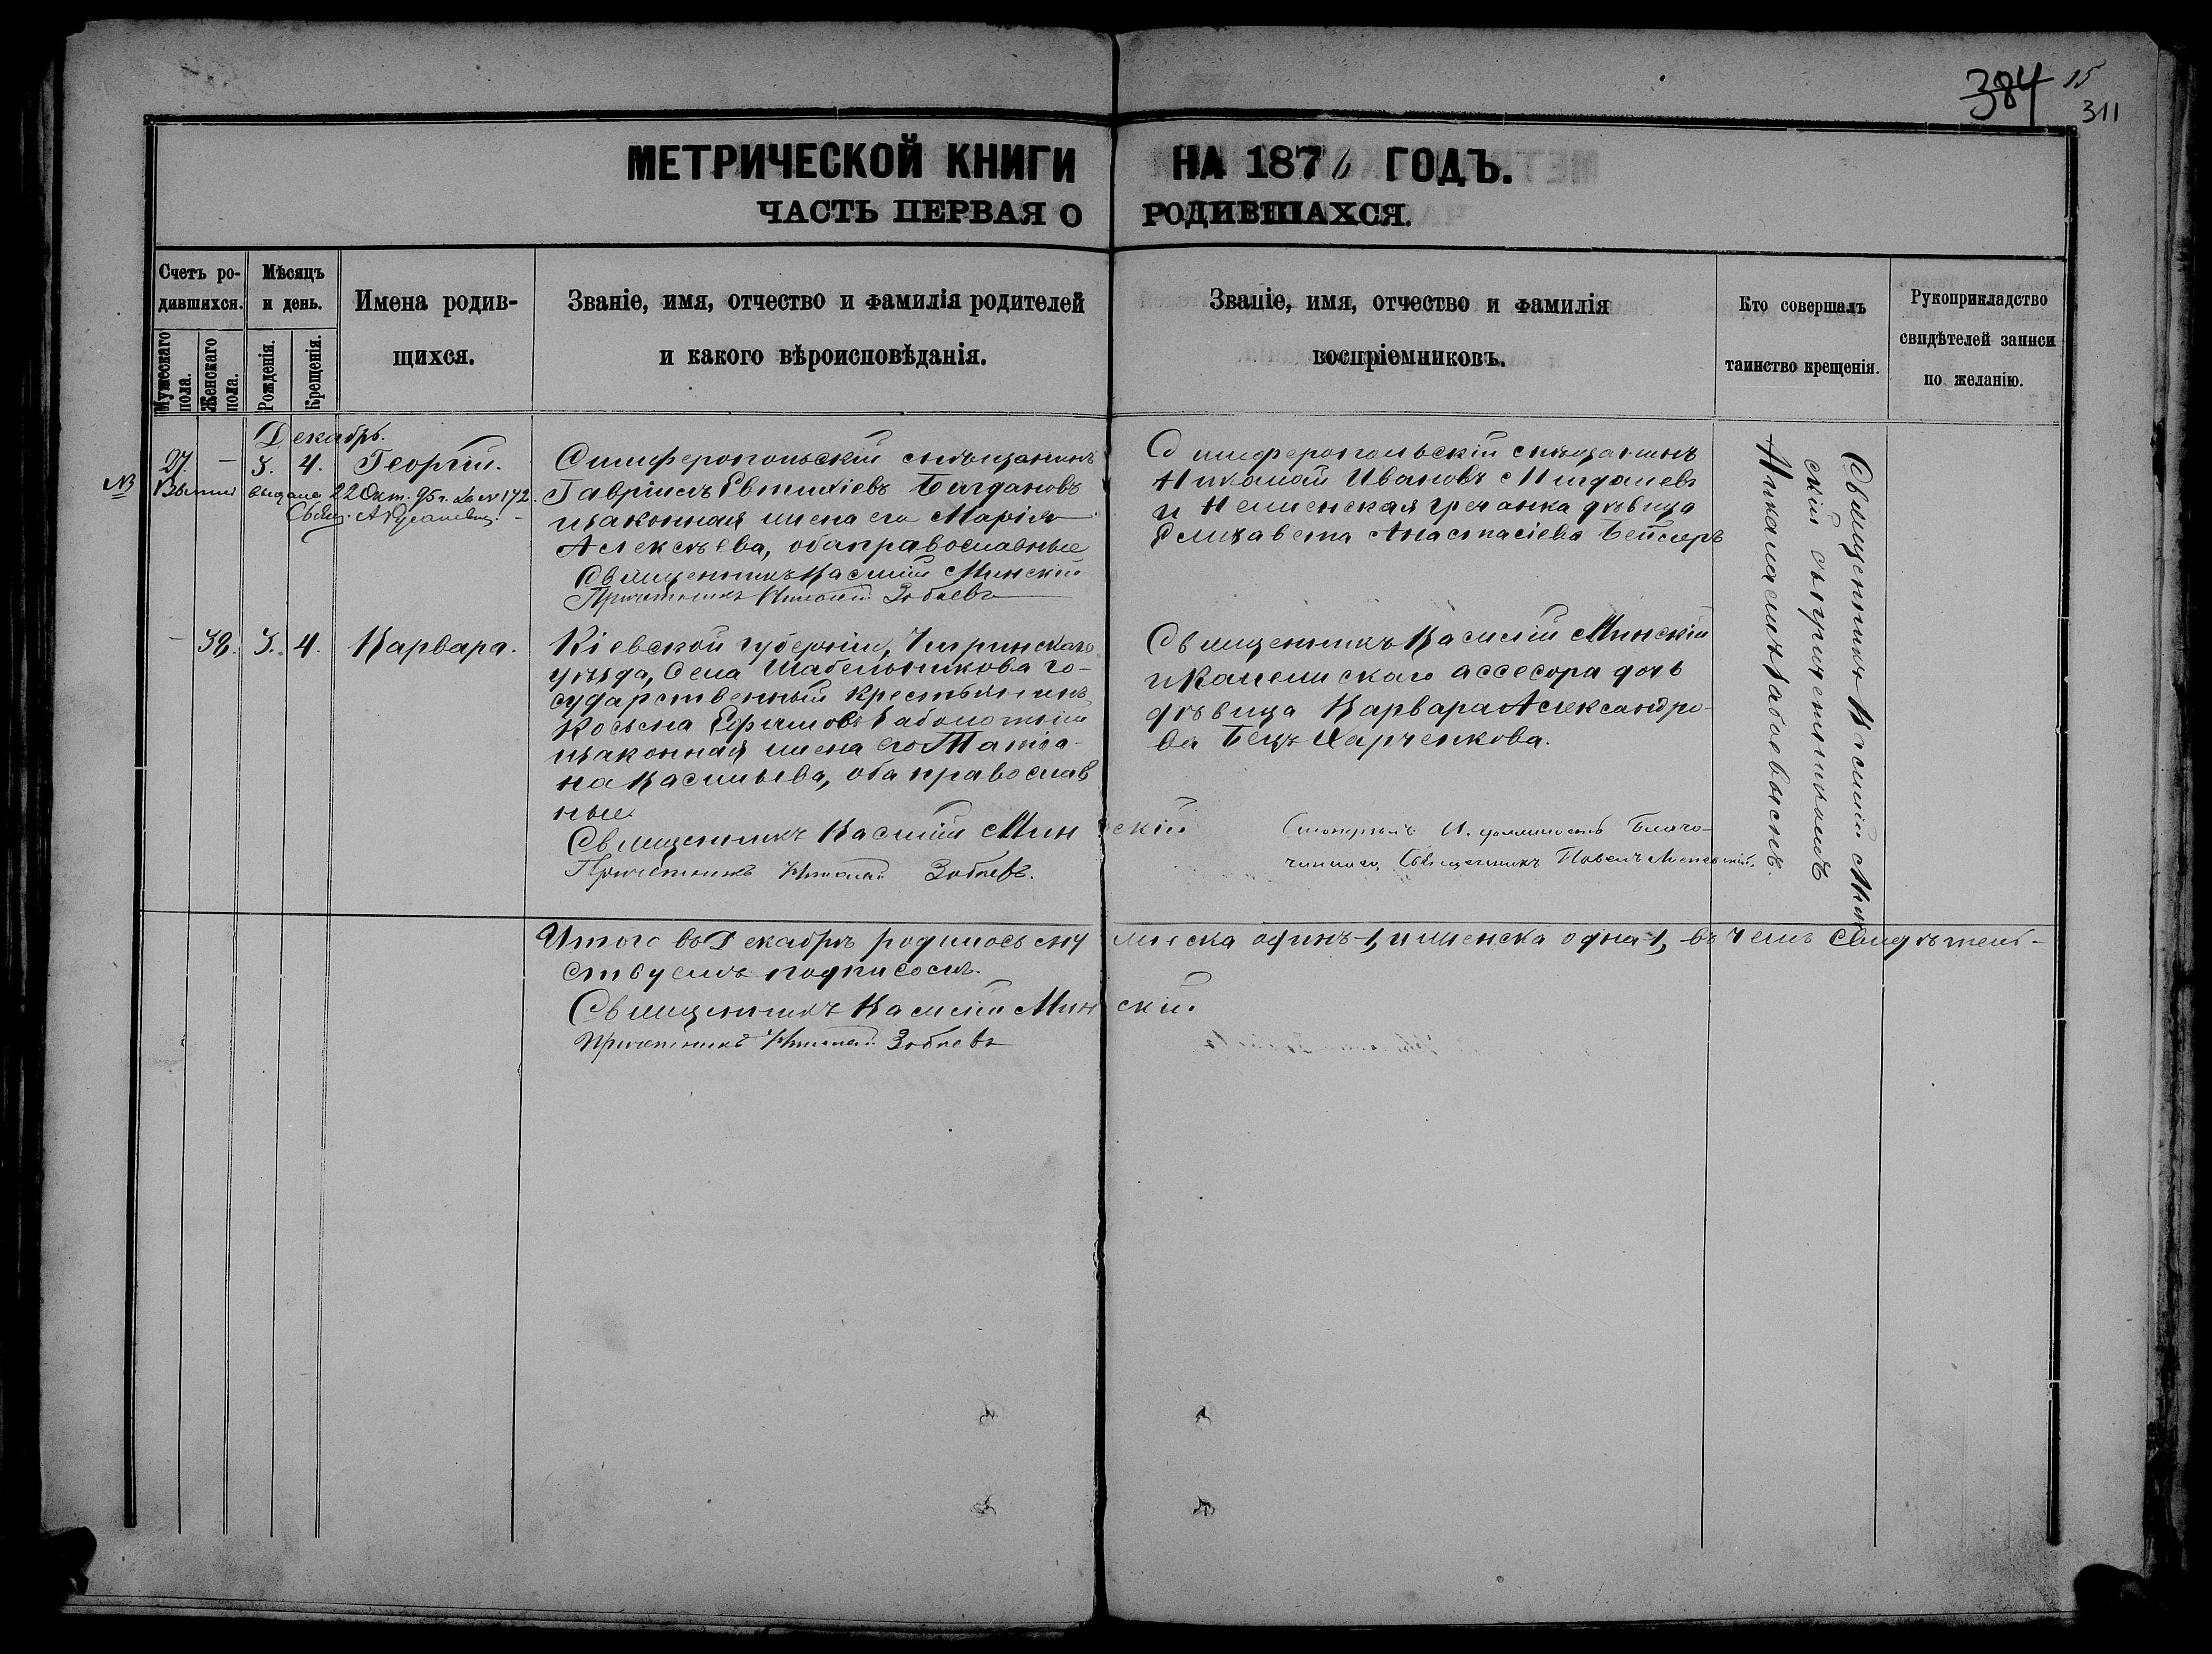 384 15
311
МЕТРИЧЕСКОЙ КНИГИ НА 1876 ГОДЪ.
ЧАСТЬ ПЕРВАЯ О РОДИВШИХСЯ.
Счетъ ро-
дившихся.
Мужескаго пола.
Женскаго пола.
Мѣсяцъ
и день.
Рожденія.
Крещенія.
Имена родив-
щихся.
Званіе, имя, отчество и фамилія родителей
и какого вѣроисповѣданія.
Званіе, имя, отчество и фамилія
воспріемниковъ.
Кто совершалъ
таинство крещенія.
Рукоприкладство
свидѣтелей записи
по желанію.
Декабрь.
27. — 3. 4. Георгій.
выдана 22 Окт. 95 г. за № 172.
Свящ.
Симферопольскій мѣщанинъ
Гавріилъ Евтихіевъ Богдановъ
и законная жена его Марія
Алексѣева, оба православные
Священникъ Василій Минскій
Причетникъ Николай Зобневъ
Симферопольскій мѣщанинъ
Николай Ивановъ
и Неженская гречанка дѣвица
Елизавета Анастасіева
Священникъ Василій Мин
скій съ причетникомъ
Николаемъ Зобневымъ.
— 38. 3. 4. Варвара.
Кіевской губерніи, Чигринскаго
уѣзда, Села Шабельникова го-
сударственный крестьянинъ
Косьма Ефимовъ Заболотній
и законная жена его Татіа-
на Васильева, оба православ
ные
Священникъ Василій Минскій
Причетникъ Николай Зобневъ.
Священникъ Василій Минскій
и Колежскаго ассесора дочь
дѣвица Варвара Александро-
ва Бецъ Харченкова.
Смотрѣлъ И. должность Благо-
чиннаго, Священникъ Павелъ
Итого въ Декабрѣ родилось му жеска одинъ 1, и женска одна 1, въ чемъ Свидѣтель-
ствуемъ подписомъ.
Священникъ Василій Минскій.
Причетникъ Николай Зобневъ